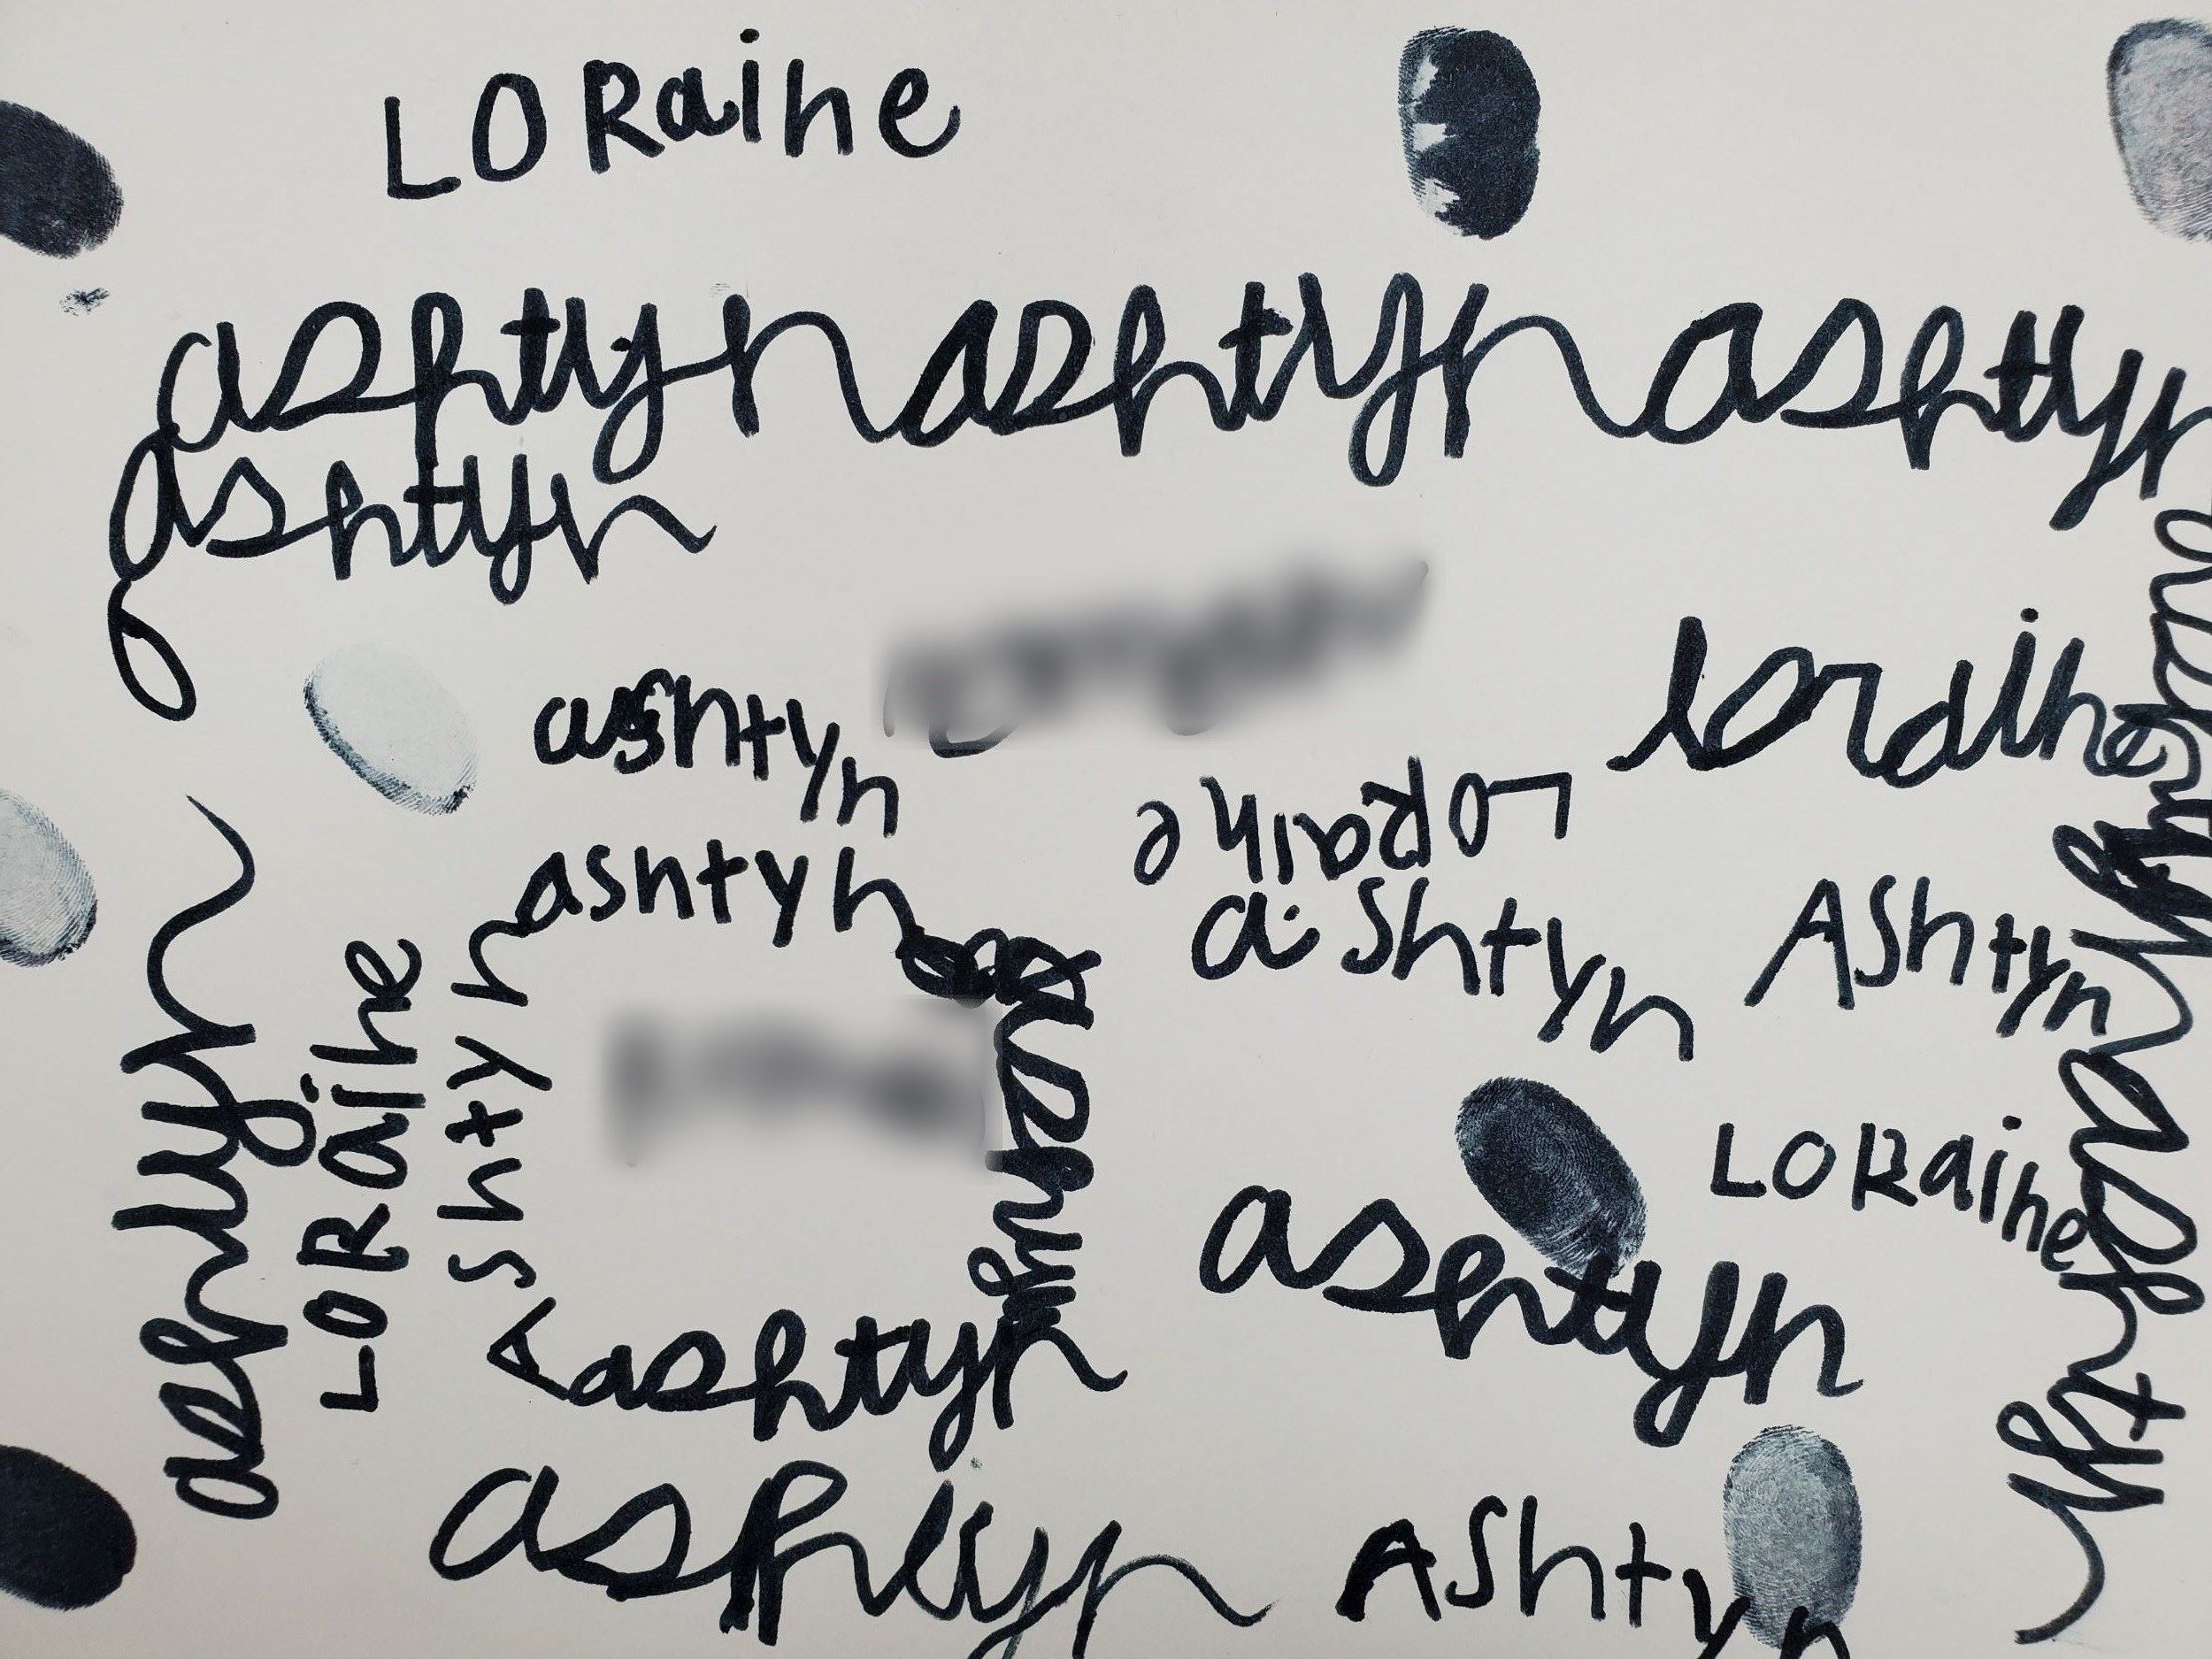 LORaine
ashtyn ashtyn ashtyn
ashtyn
ashtyn
loraine
LoRaine
ashtyn
ashtyn
AShtyn
ashtyn
LORaine
AShtyn
LORaine
ashtyn
ashtyn
ashtyn
ashtyn
AShtyn